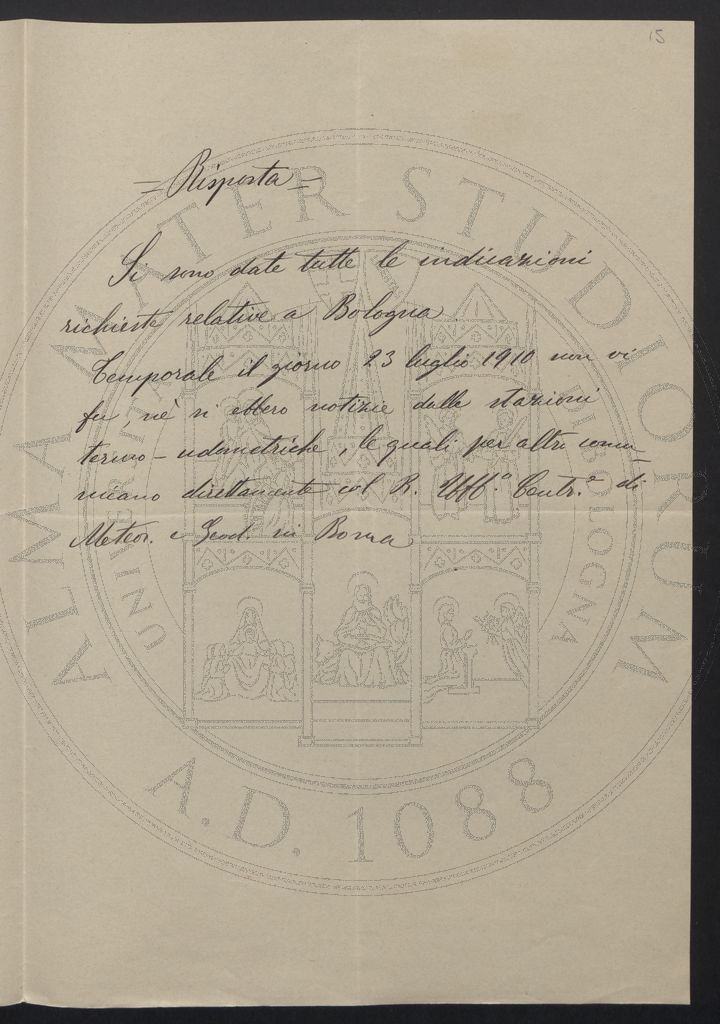 15
= Risposta =
Si sono date tutte le indicazioni
richieste relative a Bologna
Temporale il giorno 23 luglio 1910 non vi
fu, nè si ebbero notizie dalle stazioni
termo-udometriche, le quali per altro comu-
nicano direttamente col R. Uff.º Centr.º di
Meteor. e Geod. in Roma
ALMA MATER STUDIORUM
UNIVERSITÀ DI BOLOGNA
A.D. 1088